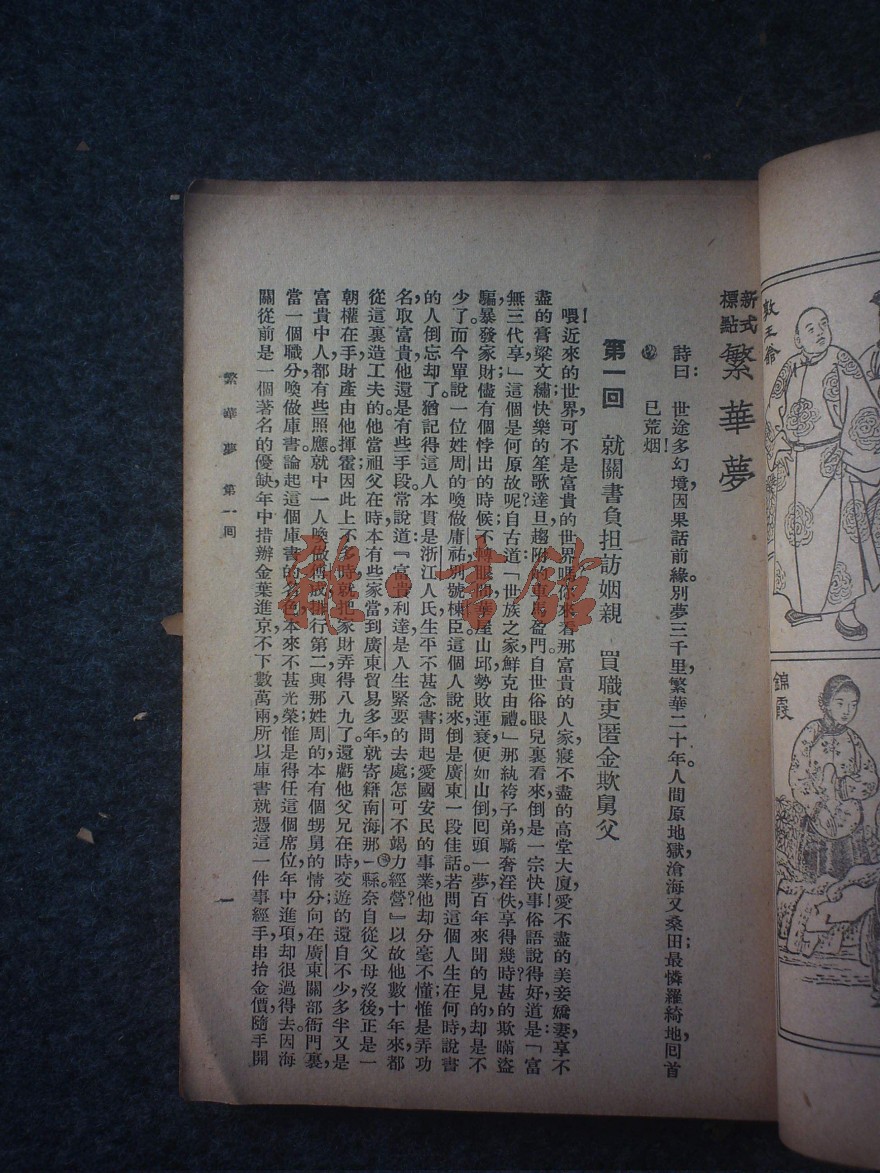 新式標點 繁華夢
詩曰: 世途多幻境,因果話前緣。別夢三千里,繁華二十年。人間原地獄,滄海又桑田;最憐羅綺地,回首
已荒烟!
第一回 就關書負担訪姻親 買職吏匿金欺舅父
喂!近來的世界,可不是富貴的世界嗎?你來看那富貴的人家,寢不盡的高堂大廈,愛不盡的美妾嬌妻,享不
盡的膏粱文繡,快樂的笙歌達旦,趨附的車馬盈門。自世俗眼兒裏看來,倒是一宗快事。俗語說得好,道是:「富
無三代享,」這個是何原故呢?自古道:「世族之家,鮮克由禮。」那紈袴子弟,驕奢淫佚,享得幾時?甚的欺瞞盜
騙,暴發家財,儘有個悖出的時候;不轉眼間,華屋山邱,勢敗運衰,便如山倒,回頭一夢。百年來聞的見的,却是不
少了。而今單說一位姓周的,喚做庸祐,別號棟臣。這個人說來,倒是廣東一段佳話。若問這個人生在何時?說書
的人倒忘却了。猶記得這人本貫是浙江人氏,生平不甚念書,問起愛國安民的事業,他却分毫不懂;惟是弄功
名,取富貴,他還是有些手段。常說道:『富貴利達,是人生緊要的去處,怎可不竭力經營?』以故他數十年來,都
從這裏造工夫的。他當祖父在時,本有些家當,到廣東貿易多年,就寄籍南海那一縣。奈自從父母沒後,正是一
朝權在手,財產由他揮霍;因此上不多時,就把家財弄得八九了。還虧他父兄在時,交遊的還自不少,多半又是
富貴中人,都有些照應。就中一人喚做傅成,排行第二,與那姓周的本有個甥舅的情分,向在廣東關部衙門裏,
當一個職分,喚做庫書。論起這個庫書的名色,本來不甚光榮;惟是得任這個席位,年中進項,却很過得去。因海
關從前是一個著名的優缺,年中措辦金葉進京,不下數萬兩,所以庫書就憑這一件事經手,串抬金價,隨手開
繁華夢 第一回
一
敦王爺
錦霞
雜·書館